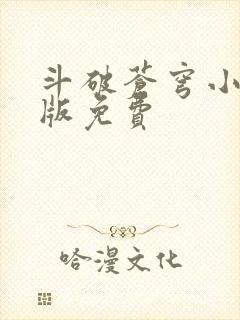 斗破苍穹小
版免费
哈漫文化